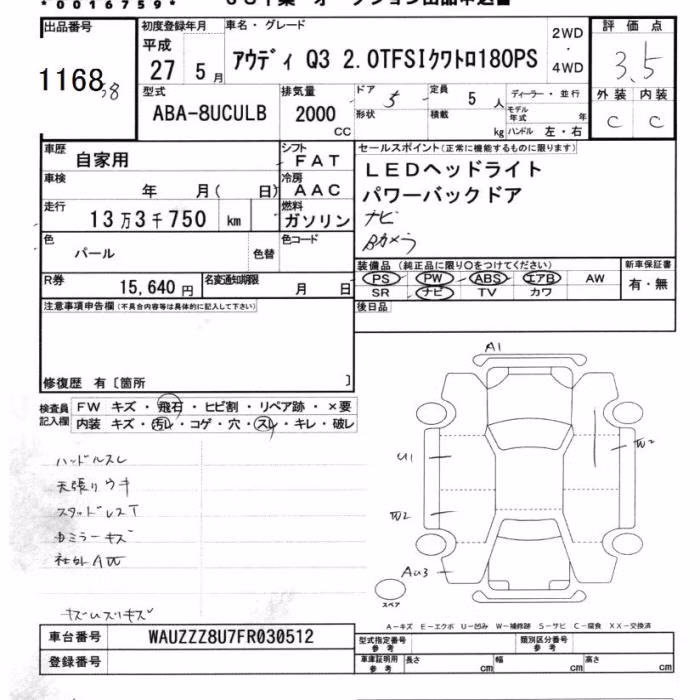 *0016759*
出品番号
1168
38
初度登録年月
平成
27 5月
車名・グレード
アウディ Q3 2.0TFSIクワトロ180PS
2WD
・
4WD
評価点
3.5
外装 内装
C C
型式
ABA-8UCULB
排気量
2000
CC
ドア
5
形状
定員
5人
積載
kg
ディーラー・並行
モデル年式 年
ハンドル 左・右
車歴
自家用
シフト
FAT
車検
年 月( 日)
冷房
AAC
走行
13万3千750 km
燃料
ガソリン
色
パール
色替
色コード
R券
15,640円
名変通知期限
月 日
セールスポイント(正常に機能するものに限ります)
LEDヘッドライト
パワーバックドア
ナビ
Bカメラ
装備品 (純正品に限り○をつけてください)
PS PW ABS エアB AW
SR ナビ TV カワ
新車保証書
有・無
後日品
注意事項申告欄(不具合内容等は具体的に記入して下さい)
修復歴 有〔箇所 〕
検査員
記入欄
FW キズ・飛石・ヒビ割・リペア跡・×要
内装 キズ・汚レ・コゲ・穴・スレ・キレ・破レ
ハンドルスレ
天張りウキ
スタッドレスT
Dミラーキズ
社外AW
キズUスリキズ
A1
U1
W2
W2
AU3
スペア
A−キズ E−エクボ U−凹み W−補修跡 S−サビ C−腐食 XX−交換済
車台番号
WAUZZZ8U7FR030512
登録番号
型式指定番号
参考
類別区分番号
参考
車庫証明用
参考
長さ cm
幅 cm
高さ cm